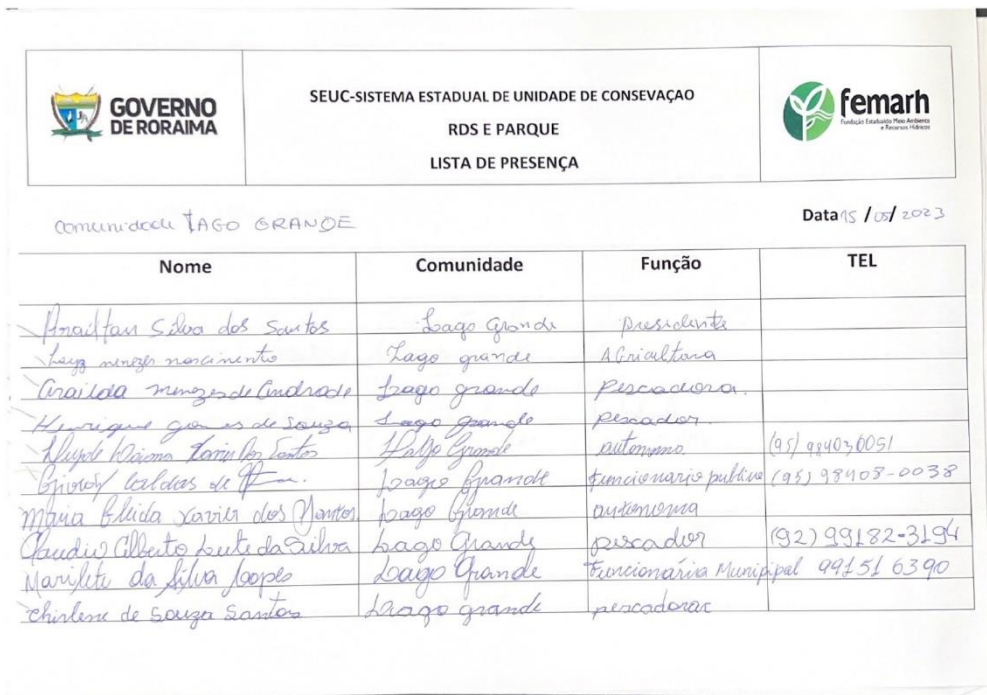 GOVERNO
DE RORAIMA
SEUC-SISTEMA ESTADUAL DE UNIDADE DE CONSEVAÇAO
RDS E PARQUE
LISTA DE PRESENÇA
femarh
Fundação Estadual do Meio Ambiente
e Recursos Hídricos
Comunidade LAGO GRANDE
Data 15 / 05 / 2023
Nome Comunidade Função TEL
Silva dos Santos Lago Grande Presidente
menezes nascimento Lago grande AGricultora
menezes de Andrade Lago grande pescadora.
Henrique gomes de Souza Lago Grande pescador.
Santos Grande autonomo (95) 984030051
Caldas de Lago Grande Funcionario publico (95) 98408-0038
Maria Cleida Xavier dos Santos Lago Grande autonoma
Claudio Alberto Leite da Silva Lago Grande pescador (92) 99182-3194
Marilete da Silva Loopes Lago Grande Funcionária Munipipal 99151 6390
Chirlene de Souza Santos Lago grande